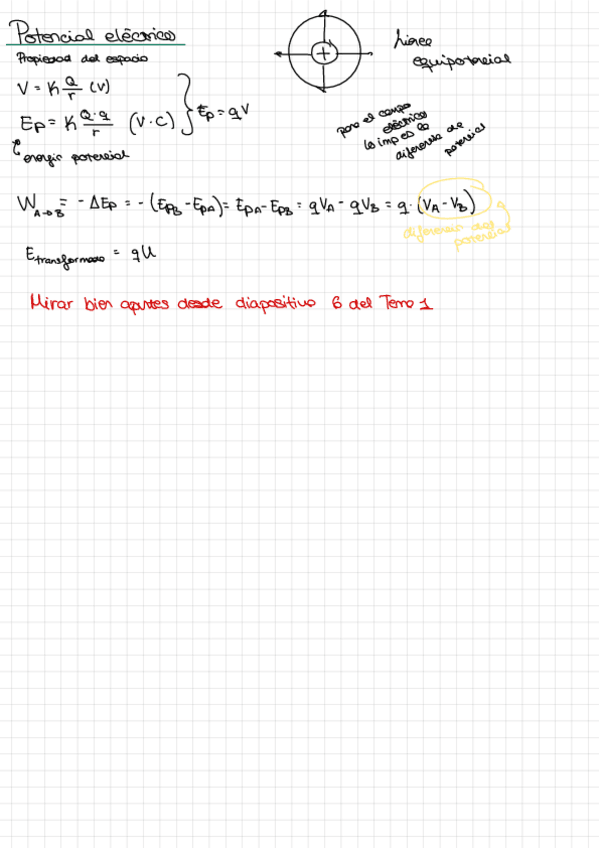 Potencial eléctrico
Propiedad del espacio
V = K Q/r (V)
Ep = K Q·q/r (V·C) } Ep = qV
energía potencial
+
Línea
equipotencial
para el campo
eléctrico
lo imp es la
diferencia de
potencial
W A→B = - ΔEp = - (EpB - EpA) = EpA - EpB = qVA - qVB = q · (VA - VB)
diferencia del
potencial
E transformada = qU
Mirar bien apuntes desde diapositiva 6 del Tema 1